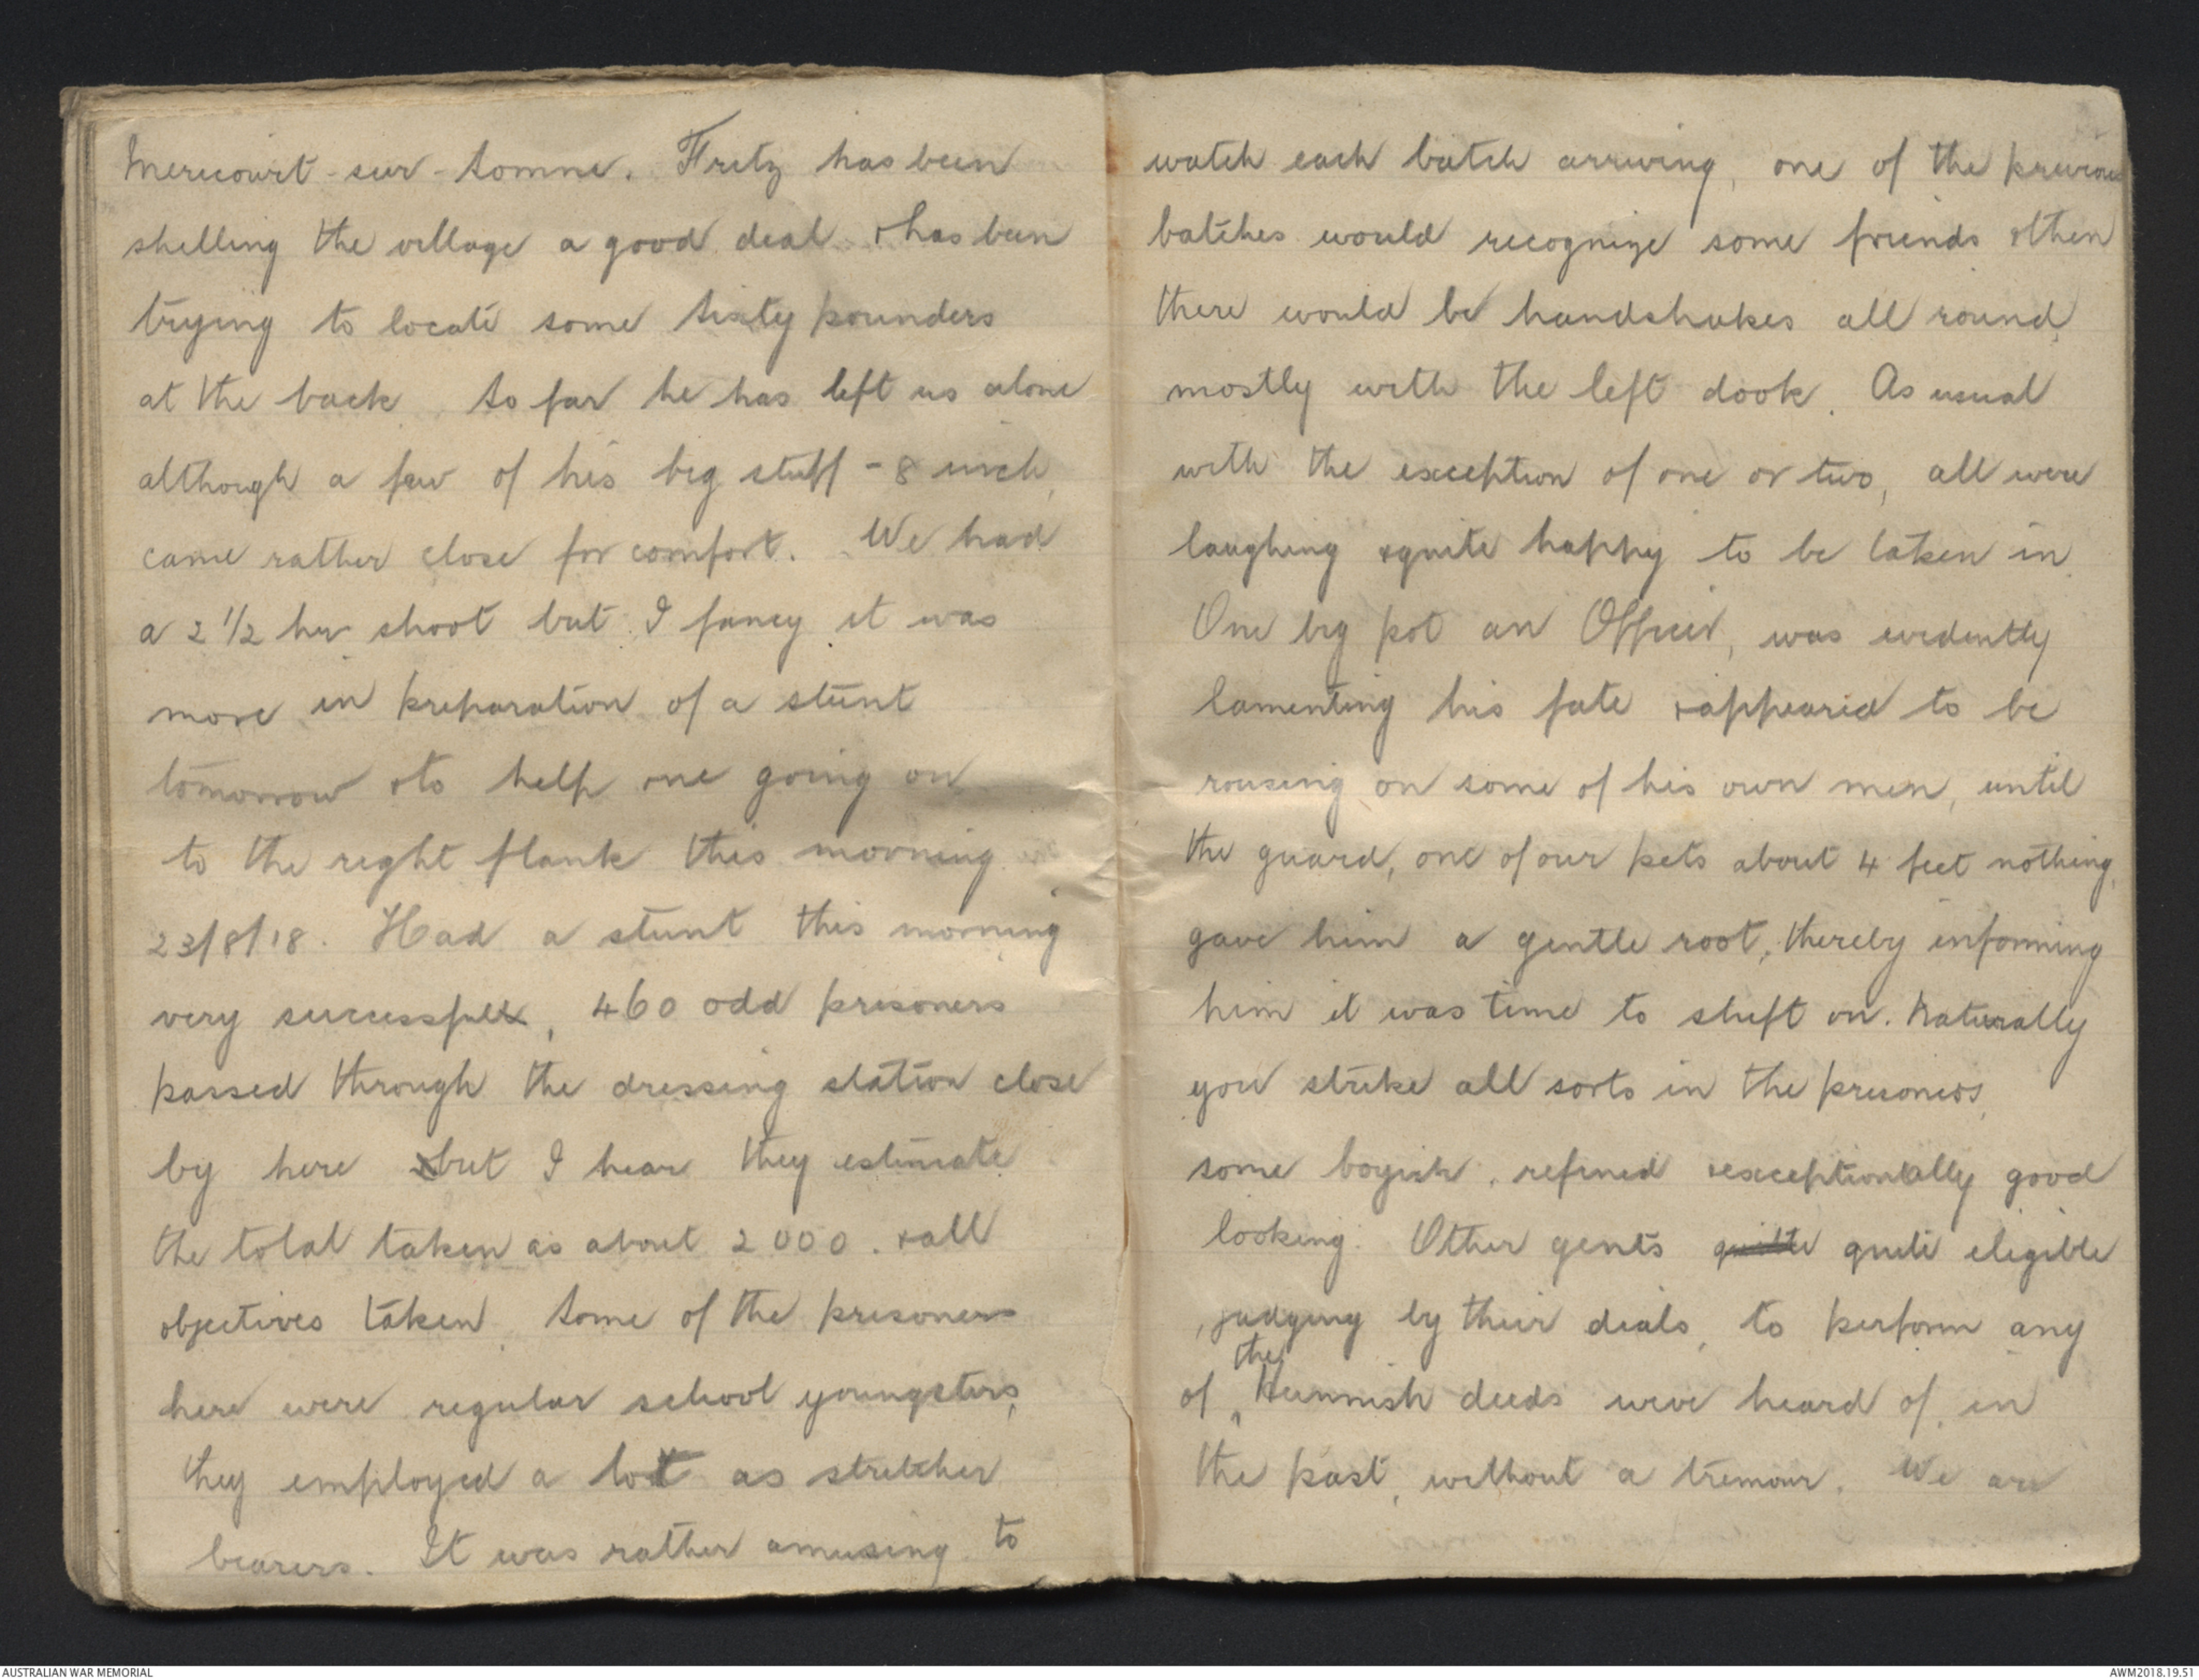 Mericourt-sur-Somme. Fritz has been
shelling the village a good deal & has been
trying to locate some sixty pounders
at the back. So far he has left us alone
although a few of his big stuff - 8 inch,
came rather close for comfort. We had
a 2 1/2 hr shoot but I fancy it was
more in preparation of a stunt
tomorrow & to help one going on
to the right flank this morning
23/8/18. Had a stunt this morning
very successful, 460 odd prisoners
passed through the dressing station close
by here but I hear they estimate
the total taken as about 2000. & all
objectives taken. Some of the prisoners
here were regular school youngsters,
they employed a lot as stretcher
bearers. It was rather amusing to
watch each batch arriving, one of the previous
batches would recognize some friends & then
there would be handshakes all round,
mostly with the left dook. As usual
with the exception of one or two, all were
laughing & quite happy to be taken in.
One big pot an Officer, was evidently
lamenting his fate & appeared to be
rousing on some of his own men, until
the guard, one of our pets about 4 feet nothing,
gave him a gentle root, thereby informing
him it was time to shift on. Naturally
you strike all sorts in the prisoners,
some boyish, refined & exceptionally good
looking. Other gents quite quite eligible
, judging by their dials, to perform any
of the Hunnish deeds weve heard of, in
the past, without a tremour. We are
AUSTRALIAN WAR MEMORIAL
AWM2018.19.51